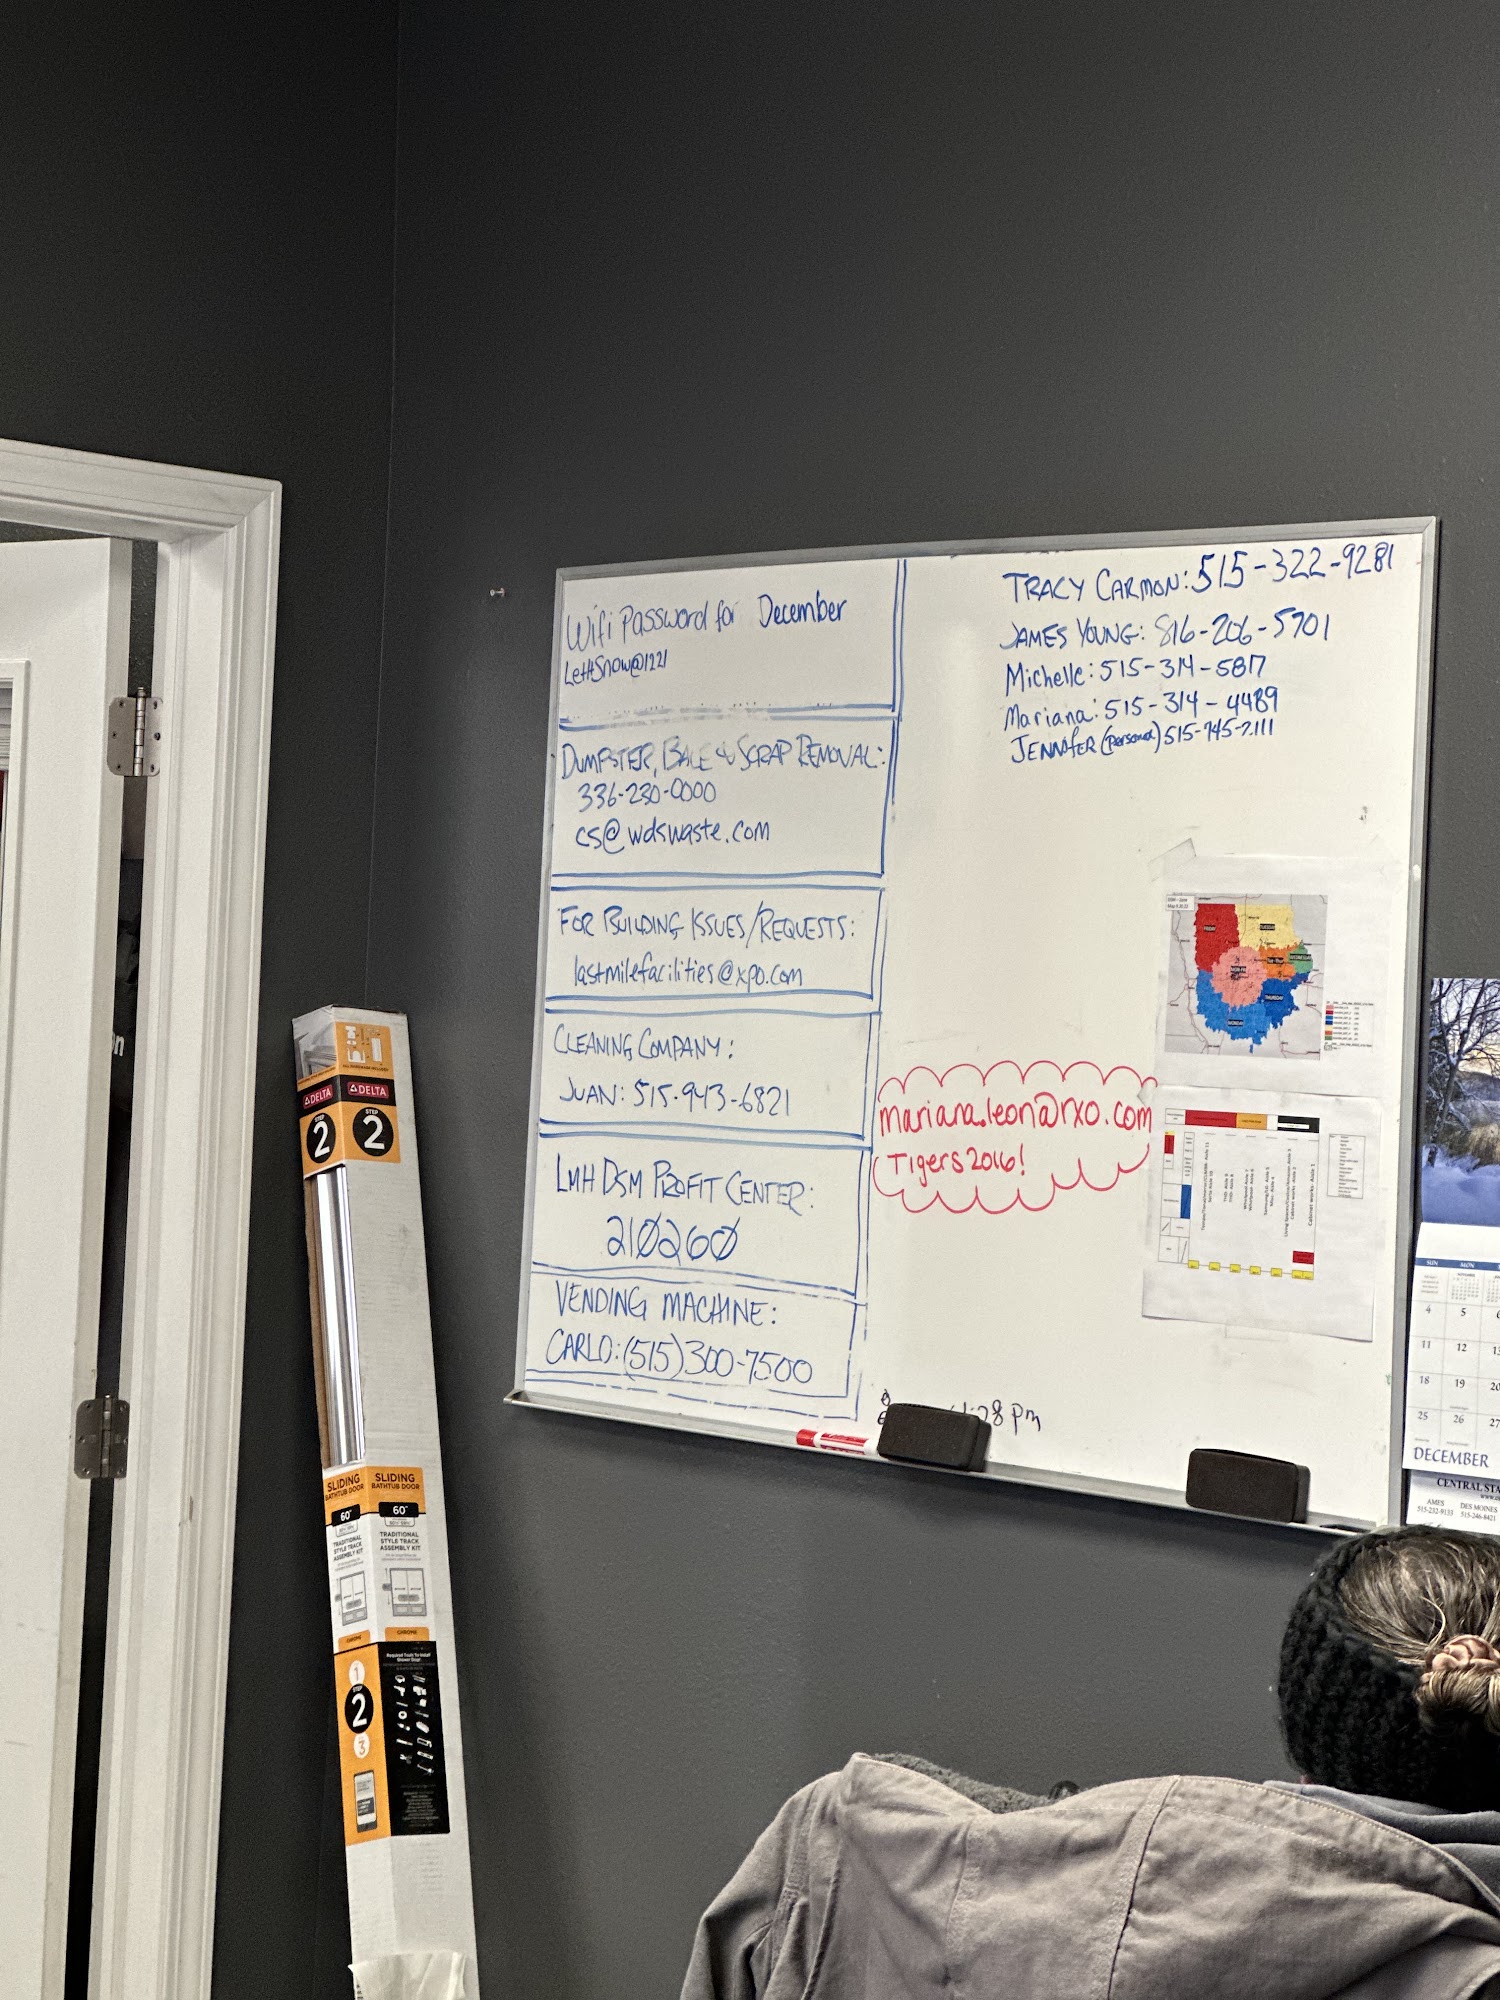 Wifi Password for December
LetItSnow@1221
DUMPSTER, BALE & SCRAP REMOVAL:
336-230-0000
cs@wdswaste.com
FOR BUILDING ISSUES/REQUESTS:
lastmilefacilities@xpo.com
CLEANING COMPANY:
JUAN: 515-943-6821
LMH DSM PROFIT CENTER:
210260
VENDING MACHINE:
CARLO: (515)300-7500
TRACY CARMON: 515-322-9281
JAMES YOUNG: 816-206-5701
Michelle: 515-314-5817
Mariana: 515-314-4489
JENNIFER (personal) 515-745-7111
mariana.leon@rxo.com
Tigers2016!
:28 pm
FRIDAY
TUESDAY
WEDNESDAY
THURSDAY
MONDAY
SUN MON
4 5
11 12
18 19
25 26
DECEMBER
AMES DES MOINES
515-232-9133 515-246-8421
DELTA DELTA
STEP STEP
2 2
SLIDING SLIDING
BATHTUB DOOR BATHTUB DOOR
60" 60"
TRADITIONAL TRADITIONAL
STYLE TRACK STYLE TRACK
ASSEMBLY KIT ASSEMBLY KIT
CHROME CHROME
1
STEP
2
3